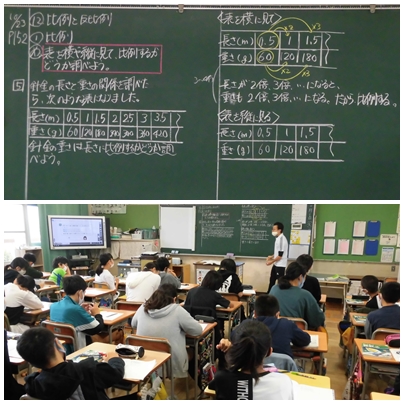 ⑫比例と反比例
P152 ① 比例
め 表を横や縦に見て、比例するか
どうか調べよう。
5 針金の長さと重さの関係を調べた
ら、次のような表になりました。
長さ(m) 0.5 1 1.5 2 2.5 3 3.5
重さ(g) 60 120 180 240 300 360 420
針金の重さは長さに比例するかどうか調
べよう。
<表を横に見て>
×2 ×3
長さ(m) 0.5 1 1.5
重さ(g) 60 120 180
×2 ×3
長さが2倍、3倍、…になると、
重さも2倍、3倍、…になる。だから比例する。
<表を縦に見て>
長さ(m) 0.5 1 1.5
重さ(g) 60 120 180
WITHOU